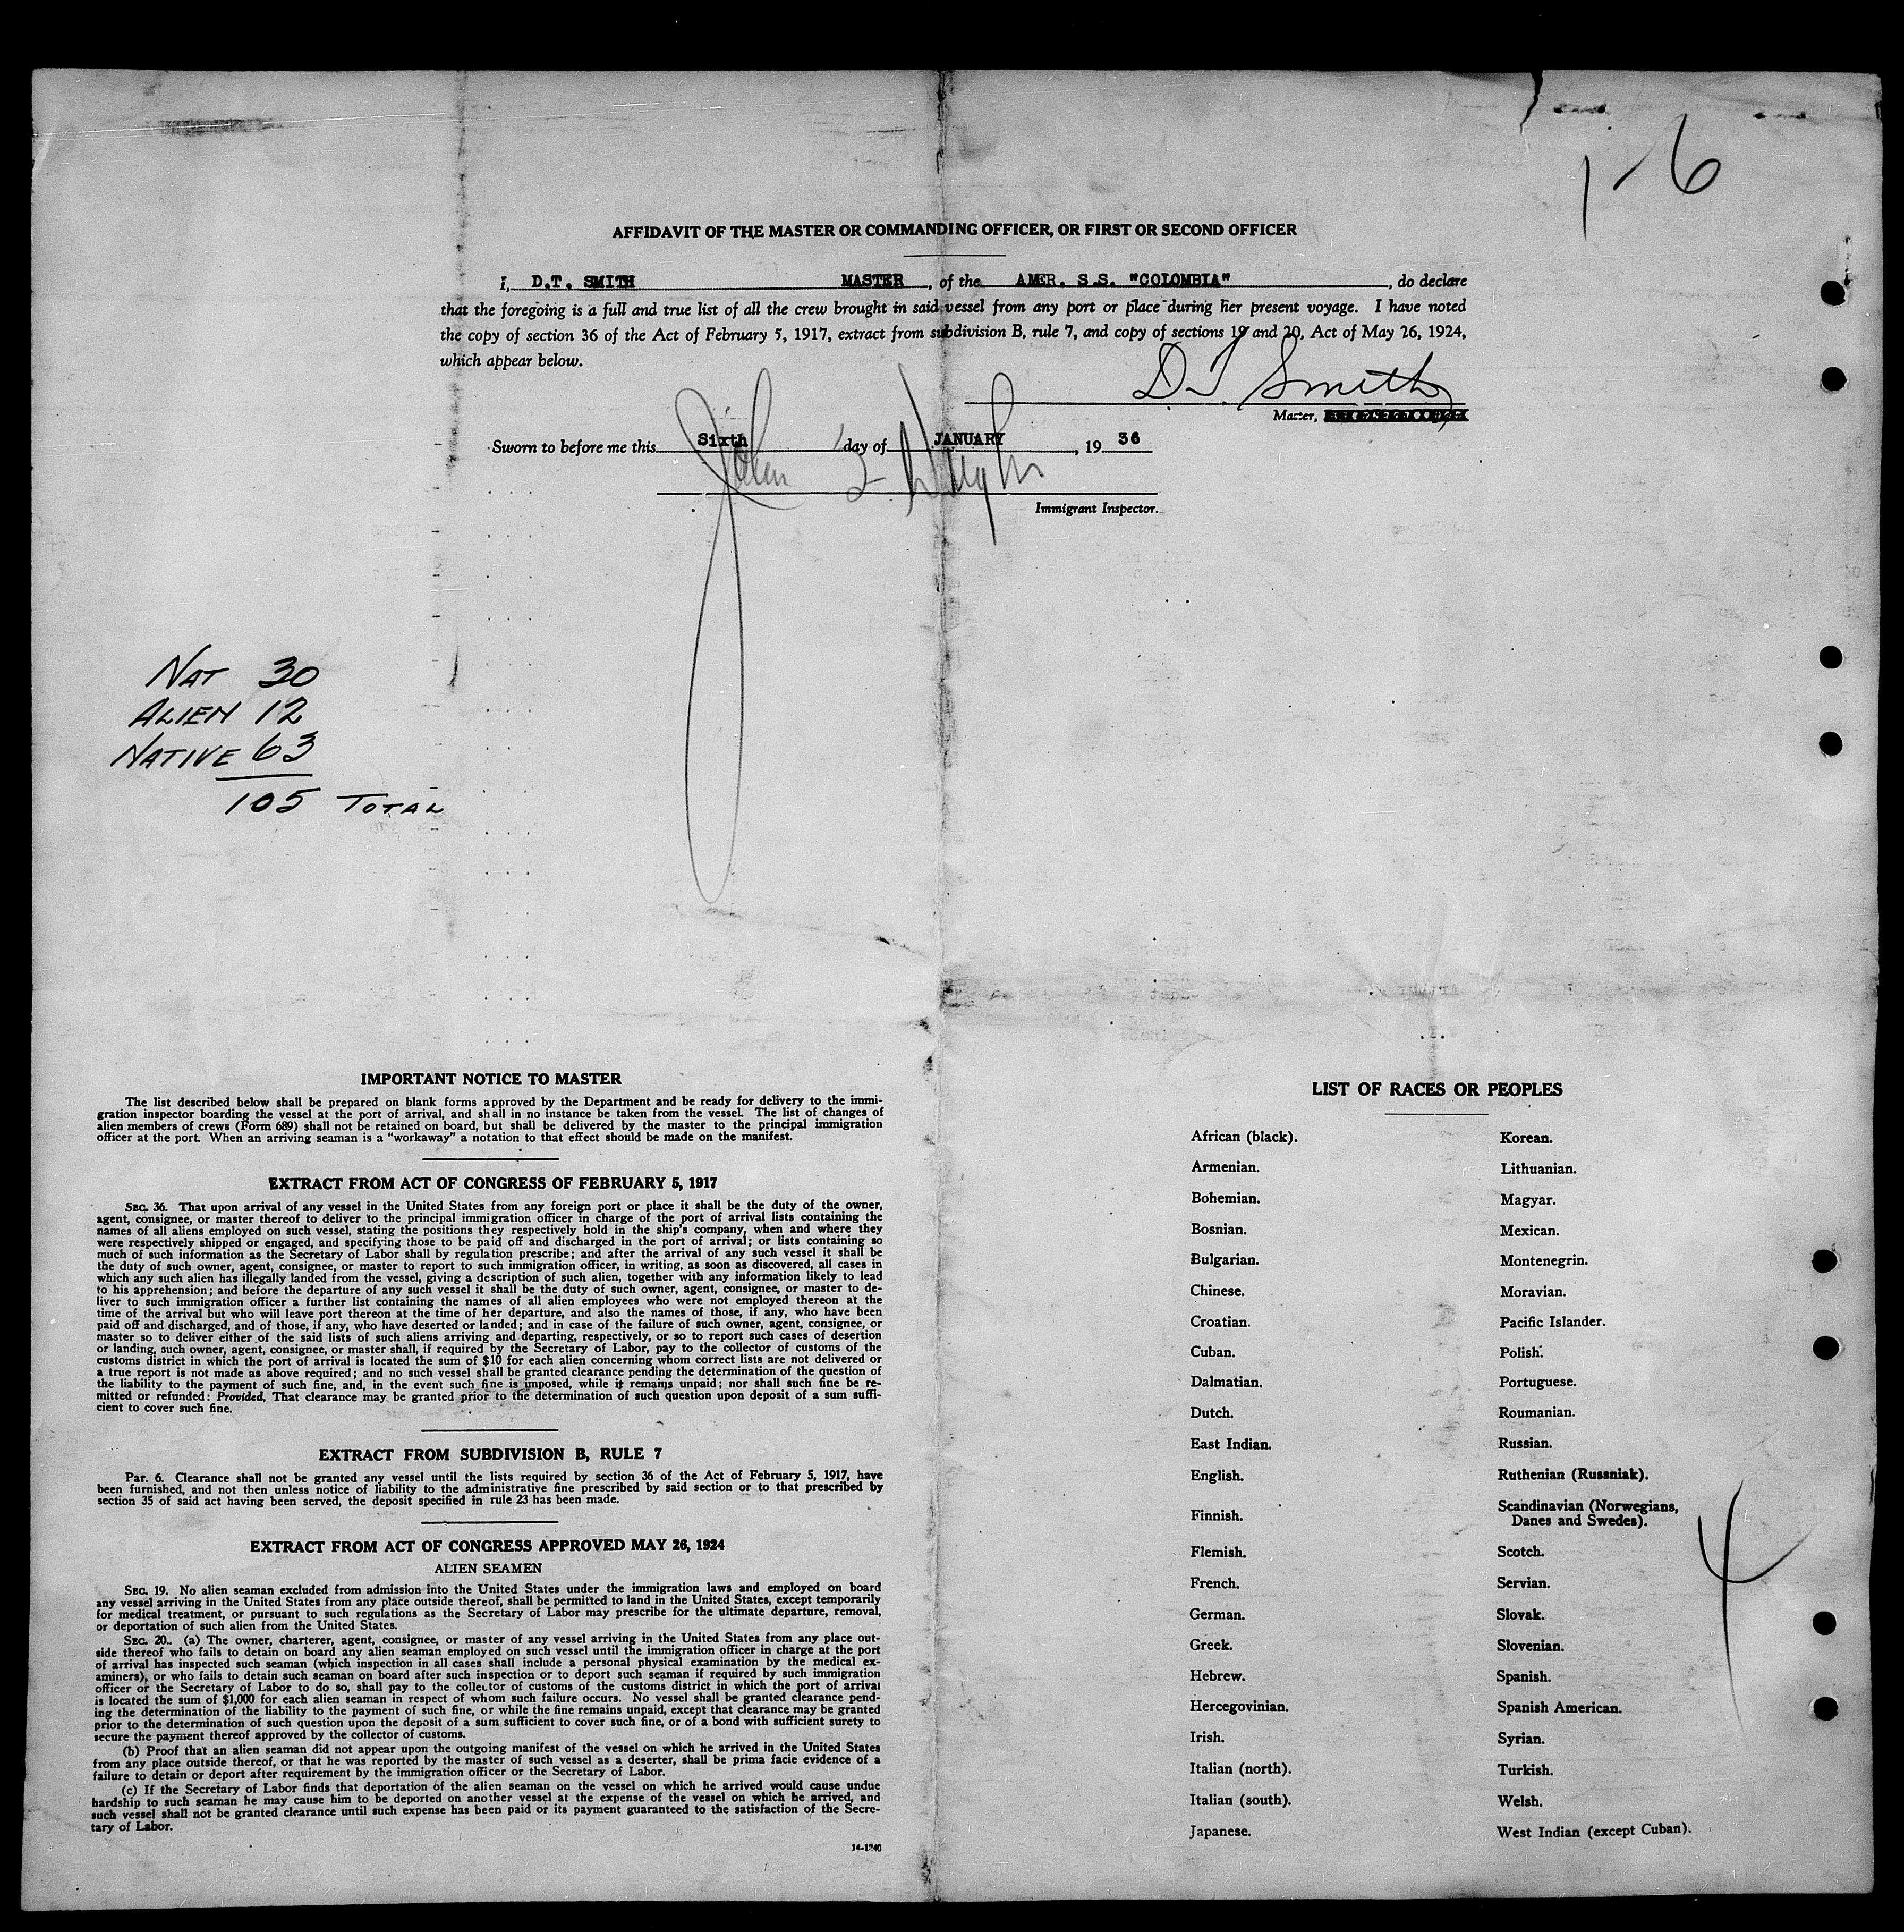 1-6
AFFIDAVIT OF THE MASTER OR COMMANDING OFFICER, OR FIRST OR SECOND OFFICER
I, D.T. SMITH MASTER, of the AMER. S.S. "COLOMBIA", do declare
that the foregoing is a full and true list of all the crew brought in said vessel from any port or place during her present voyage. I have noted
the copy of section 36 of the Act of February 5, 1917, extract from subdivision B, rule 7, and copy of sections 19 and 20, Act of May 26, 1924,
which appear below.
D T Smith
Master,
Sworn to before me this Sixth day of JANUARY, 19 36
John
Immigrant Inspector.
NAT 30
ALIEN 12
NATIVE 63
105 TOTAL
IMPORTANT NOTICE TO MASTER
The list described below shall be prepared on blank forms approved by the Department and be ready for delivery to the immi-
gration inspector boarding the vessel at the port of arrival, and shall in no instance be taken from the vessel. The list of changes of
alien members of crews (Form 689) shall not be retained on board, but shall be delivered by the master to the principal immigration
officer at the port. When an arriving seaman is a "workaway" a notation to that effect should be made on the manifest.
EXTRACT FROM ACT OF CONGRESS OF FEBRUARY 5, 1917
SEC. 36. That upon arrival of any vessel in the United States from any foreign port or place it shall be the duty of the owner,
agent, consignee, or master thereof to deliver to the principal immigration officer in charge of the port of arrival lists containing the
names of all aliens employed on such vessel, stating the positions they respectively hold in the ship's company, when and where they
were respectively shipped or engaged, and specifying those to be paid off and discharged in the port of arrival; or lists containing so
much of such information as the Secretary of Labor shall by regulation prescribe; and after the arrival of any such vessel it shall be
the duty of such owner, agent, consignee, or master to report to such immigration officer, in writing, as soon as discovered, all cases in
which any such alien has illegally landed from the vessel, giving a description of such alien, together with any information likely to lead
to his apprehension; and before the departure of any such vessel it shall be the duty of such owner, agent, consignee, or master to de-
liver to such immigration officer a further list containing the names of all alien employees who were not employed thereon at the
time of the arrival but who will leave port thereon at the time of her departure, and also the names of those, if any, who have been
paid off and discharged, and of those, if any, who have deserted or landed; and in case of the failure of such owner, agent, consignee, or
master so to deliver either of the said lists of such aliens arriving and departing, respectively, or so to report such cases of desertion
or landing, such owner, agent, consignee, or master shall, if required by the Secretary of Labor, pay to the collector of customs of the
customs district in which the port of arrival is located the sum of $10 for each alien concerning whom correct lists are not delivered or
a true report is not made as above required; and no such vessel shall be granted clearance pending the determination of the question of
the liability to the payment of such fine, and, in the event such fine is imposed, while it remains unpaid; nor shall such fine be re-
mitted or refunded: Provided, That clearance may be granted prior to the determination of such question upon deposit of a sum suffi-
cient to cover such fine.
EXTRACT FROM SUBDIVISION B, RULE 7
PAR. 6. Clearance shall not be granted any vessel until the lists required by section 36 of the Act of February 5, 1917, have
been furnished, and not then unless notice of liability to the administrative fine prescribed by said section or to that prescribed by
section 35 of said act having been served, the deposit specified in rule 23 has been made.
EXTRACT FROM ACT OF CONGRESS APPROVED MAY 26, 1924
ALIEN SEAMEN
SEC. 19. No alien seaman excluded from admission into the United States under the immigration laws and employed on board
any vessel arriving in the United States from any place outside thereof, shall be permitted to land in the United States, except temporarily
for medical treatment, or pursuant to such regulations as the Secretary of Labor may prescribe for the ultimate departure, removal,
or deportation of such alien from the United States.
SEC. 20. (a) The owner, charterer, agent, consignee, or master of any vessel arriving in the United States from any place out-
side thereof who fails to detain on board any alien seaman employed on such vessel until the immigration officer in charge at the port
of arrival has inspected such seaman (which inspection in all cases shall include a personal physical examination by the medical ex-
aminers), or who fails to detain such seaman on board after such inspection or to deport such seaman if required by such immigration
officer or the Secretary of Labor to do so, shall pay to the collector of customs of the customs district in which the port of arrival
is located the sum of $1,000 for each alien seaman in respect of whom such failure occurs. No vessel shall be granted clearance pend-
ing the determination of the liability to the payment of such fine, or while the fine remains unpaid, except that clearance may be granted
prior to the determination of such question upon the deposit of a sum sufficient to cover such fine, or of a bond with sufficient surety to
secure the payment thereof approved by the collector of customs.
(b) Proof that an alien seaman did not appear upon the outgoing manifest of the vessel on which he arrived in the United States
from any place outside thereof, or that he was reported by the master of such vessel as a deserter, shall be prima facie evidence of a
failure to detain or deport after requirement by the immigration officer or the Secretary of Labor.
(c) If the Secretary of Labor finds that deportation of the alien seaman on the vessel on which he arrived would cause undue
hardship to such seaman he may cause him to be deported on another vessel at the expense of the vessel on which he arrived, and
such vessel shall not be granted clearance until such expense has been paid or its payment guaranteed to the satisfaction of the Secre-
tary of Labor.
14-1240
LIST OF RACES OR PEOPLES
African (black).
Armenian.
Bohemian.
Bosnian.
Bulgarian.
Chinese.
Croatian.
Cuban.
Dalmatian.
Dutch.
East Indian.
English.
Finnish.
Flemish.
French.
German.
Greek.
Hebrew.
Hercegovinian.
Irish.
Italian (north).
Italian (south).
Japanese.
Korean.
Lithuanian.
Magyar.
Mexican.
Montenegrin.
Moravian.
Pacific Islander.
Polish.
Portuguese.
Roumanian.
Russian.
Ruthenian (Russniak).
Scandinavian (Norwegians,
Danes and Swedes).
Scotch.
Servian.
Slovak.
Slovenian.
Spanish.
Spanish American.
Syrian.
Turkish.
Welsh.
West Indian (except Cuban).